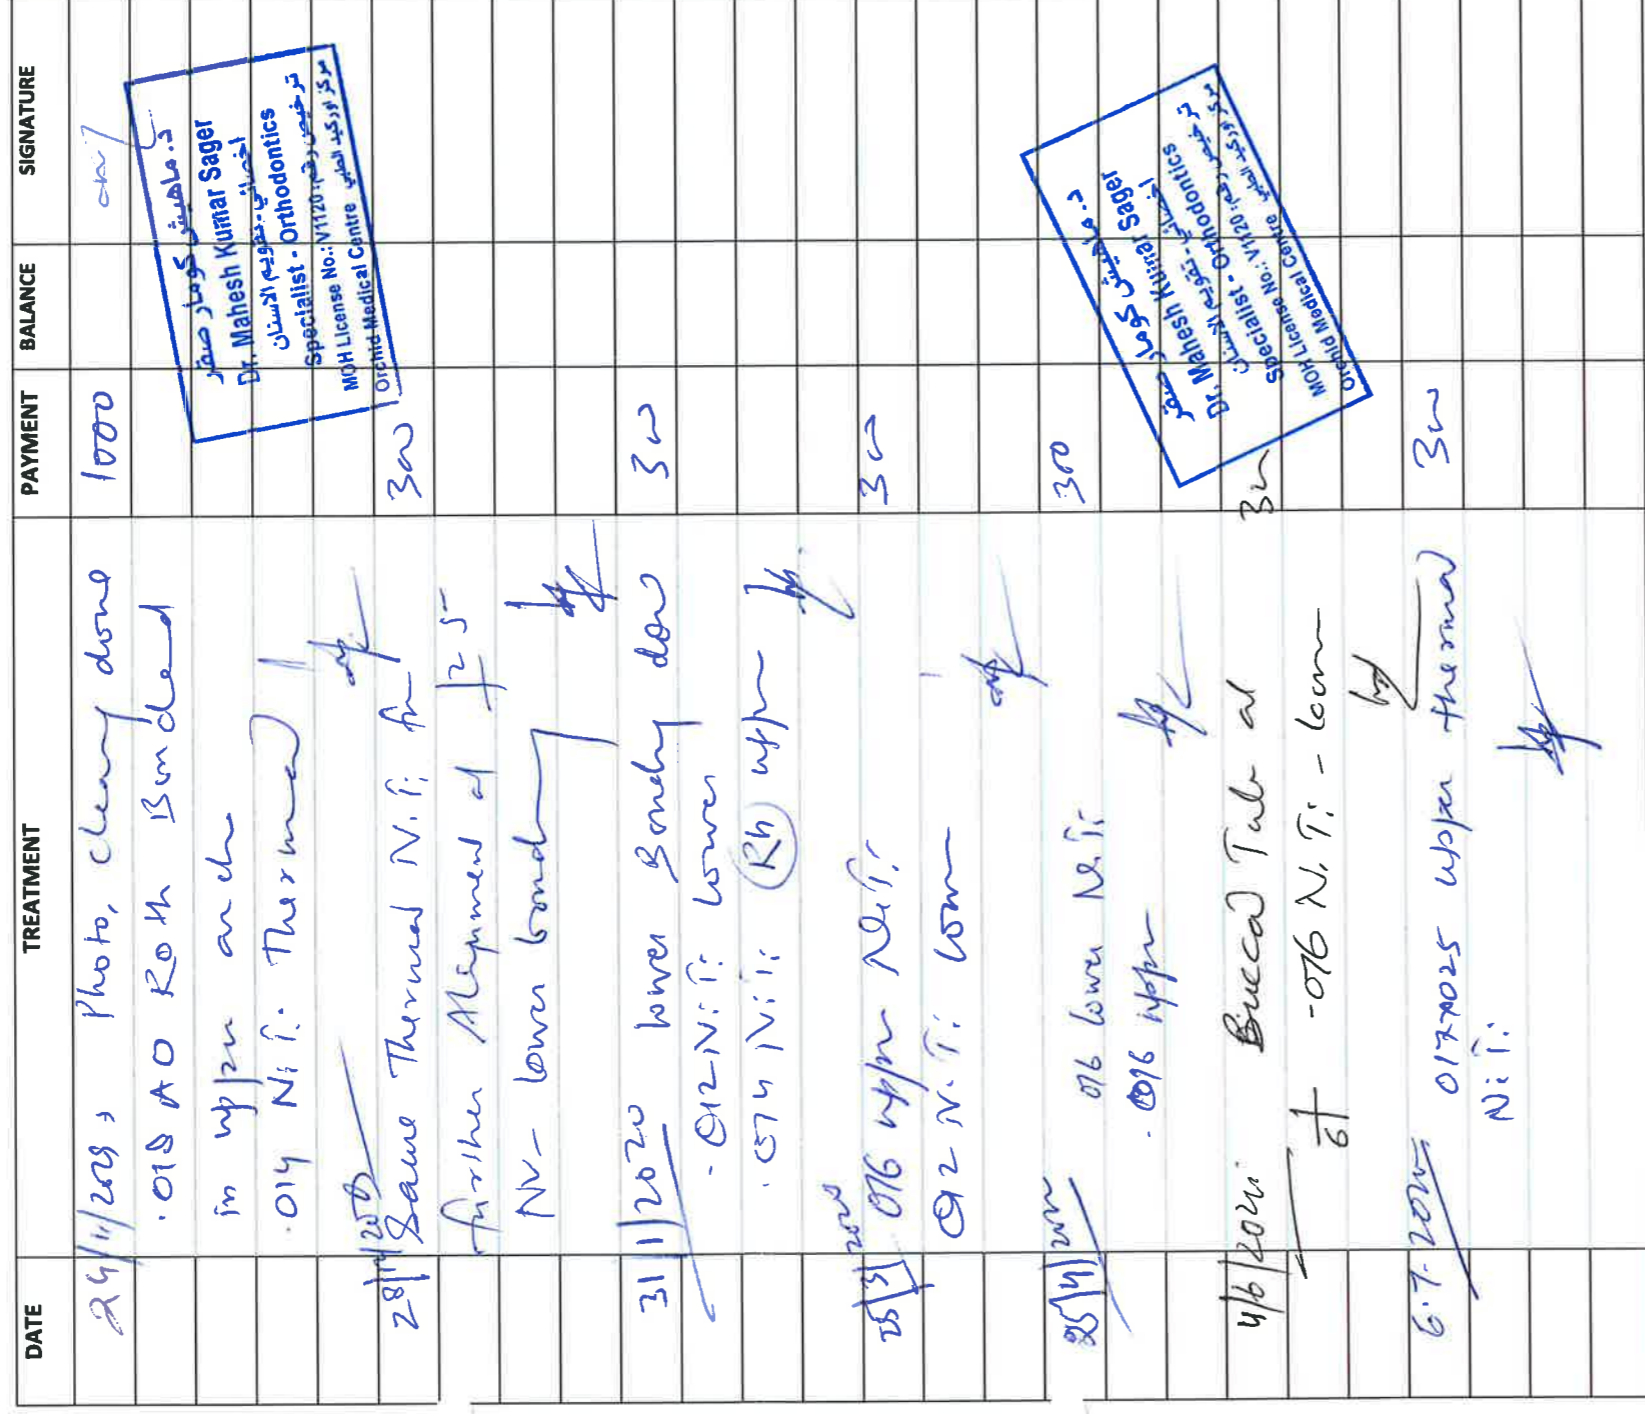 DATE TREATMENT PAYMENT BALANCE SIGNATURE
24/11/2019, Photo, cleany done 1000
.018 AO Roth Bonded
in upper arch
.014 Ni Ti. Thermal
28/12/2019
Same Thermal N.Ti for 300
further Alignment of 25
NV- lower bond
31/1/2020 lower Bonding done 300
.012 Ni Ti lower
.014 Ni Ti (Rh) upper
25/3/2020 016 upper NiTi 300
012 N.Ti lower
25/4/2020 016 lower NiTi 300
.016 upper
4/6/2020 Buccal Tube at 300
6 -016 N.Ti - lower
6.7.2020 017x025 upper thermal 300
NiTi
د. ماهيش كومار صقر
Dr. Mahesh Kumar Sager
اخصائي - تقويم الاسنان
Specialist - Orthodontics
ترخيص رقم:
MOH License No.: V1120
مركز اوركيد الطبي
Orchid Medical Centre
د. ماهيش كومار صقر
Dr. Mahesh Kumar Sager
اخصائي - تقويم الاسنان
Specialist - Orthodontics
ترخيص رقم:
MOH License No.: V1120
مركز اوركيد الطبي
Orchid Medical Centre